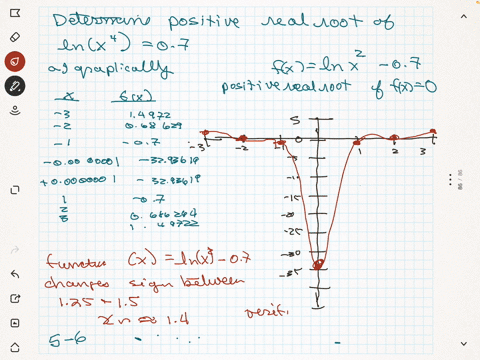 Determine positive real root of
ln(x⁴) = 0.7
a) graphically
f(x) = ln x² - 0.7
positive real root of f(x)=0
x f(x)
-3 1.4972
-2 0.68629
-1 -0.7
-0.0000001 -32.93619
+0.0000001 -32.93619
1 -0.7
2 0.686294
3 1.49722
5
0
-5
-15
-20
-25
-30
-35
-3 -2 -1 1 2 3
(x) = ln(x)² - 0.7
changes sign between
1.25 - 1.5
≈ 1.4
5-6